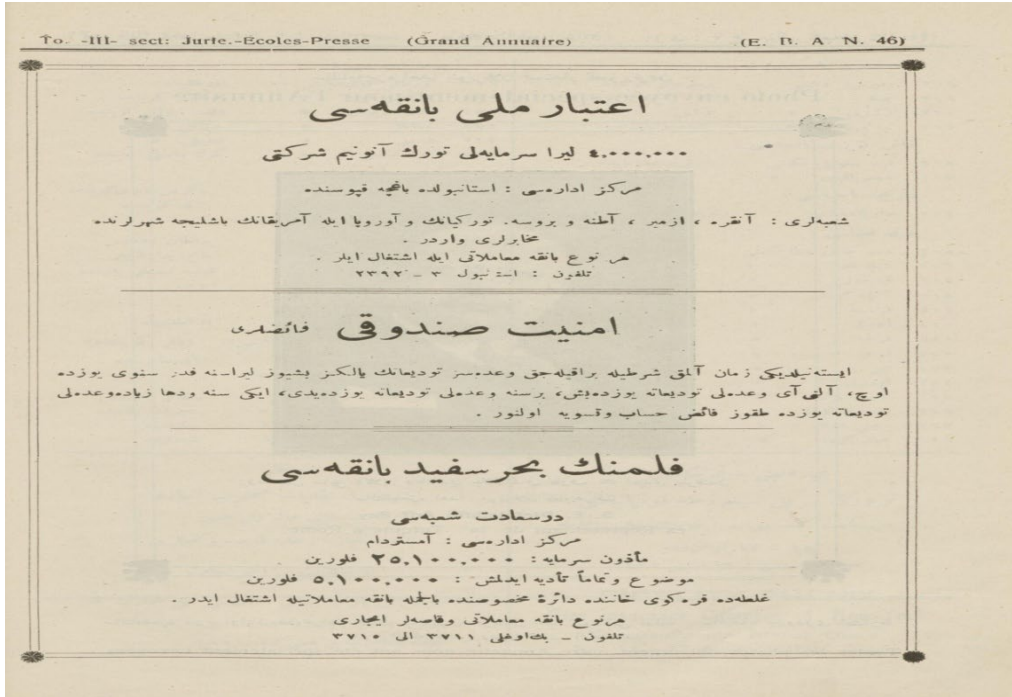 To. -III- sect: Juric.-Ecoles-Presse (Grand Annuaire) (E. B. A. N. 46)
اعتبار ملی بانقه‌سی
٤.٠٠٠.٠٠٠ لیرا سرمایه‌لی تورك آنونیم شركتی
مركز اداره‌سی : استانبولده باغچه قپوسنده
شعبه‌لری : آنقره ، ازمیر ، آطنه و بروسه. توركیانك و آوروپا ایله آمریقانك باشلیجه شهرلرنده
مخابرلری واردر .
هر نوع بانقه معاملاتی ایله اشتغال ایلر .
تلفون : استانبول ٣ – ٢٣٩٢
امنیت صندوقی فائضلری
ایسته‌نیلدیكی زمان آلمق شرطیله براقیله‌جق وعده‌سز تودیعاتك یالكز بشیوز لیراسنه قدر سنوی یوزده
اوچ، آلتی آی وعده‌لی تودیعاته یوزده‌بش، برسنه وعده‌لی تودیعاته یوزده‌یدی، ایكی سنه ودها زیاده‌وعده‌لی
تودیعاته یوزده طقوز فائض حساب وتسویه اولنور .
فلمنك بحر سفید بانقه‌سی
درسعادت شعبه‌سی
مركز اداره‌سی : آمستردام
مأذون سرمایه : ٢٥.١٠٠.٠٠٠ فلورین
موضوع وتماماً تأدیه ایدلمش : ٥.١٠٠.٠٠٠ فلورین
غلطه‌ده قره‌كوی خاننده دائرۀ مخصوصنده بالجمله بانقه معاملاتیله اشتغال ایدر .
هرنوع بانقه معاملاتی وقاصه‌لر ایجاری
تلفون – بك‌اوغلی ٣٧١١ الی ٣٧١٠